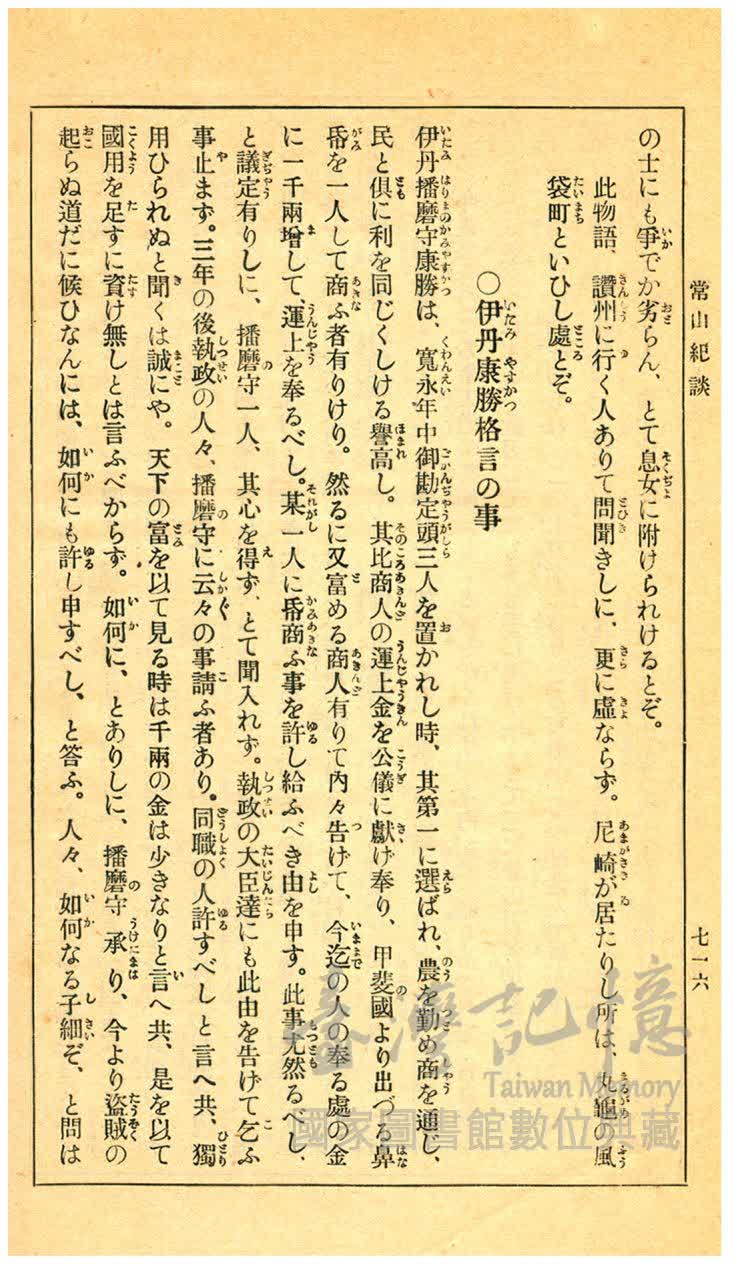 常山紀談
七一六
の士にも爭でか劣らん、とて息女に附けられけるとぞ。
此物語、讚州に行く人ありて問聞きしに、更に虛ならず。尼崎が居たりし所は、丸龜の風
袋町といひし處とぞ。
〇伊丹康勝格言の事
伊丹播磨守康勝は、寬永年中御勘定頭三人を置かれし時、其第一に選ばれ、農を勤め商を通じ、
民と俱に利を同じくしける譽高し。其比商人の運上金を公儀に獻げ奉り、甲斐國より出づる鼻
帋を一人して商ふ者有りけり。然るに又富める商人有りて內々告げて、今迄の人の奉る處の金
に一千兩增して、運上を奉るべし。某一人に帋商ふ事を許し給ふべき由を申す。此事尤然るべし、
と議定有りしに、播磨守一人、其心を得ず、とて聞入れず。執政の大臣達にも此由を告げて乞ふ
事止まず。三年の後執政の人々、播磨守に云々の事請ふ者あり。同職の人許すべしと言へ共、獨
用ひられぬと聞くは誠にや。天下の富を以て見る時は千兩の金は少きなりと言へ共、是を以て
國用を足すに資け無しとは言ふべからず。如何に、とありしに、播磨守承り、今より盜賊の
起らぬ道だに候ひなんには、如何にも許し申すべし、と答ふ。人々、如何なる子細ぞ、と問は
臺灣記憶
Taiwan Memory
國家圖書館數位典藏